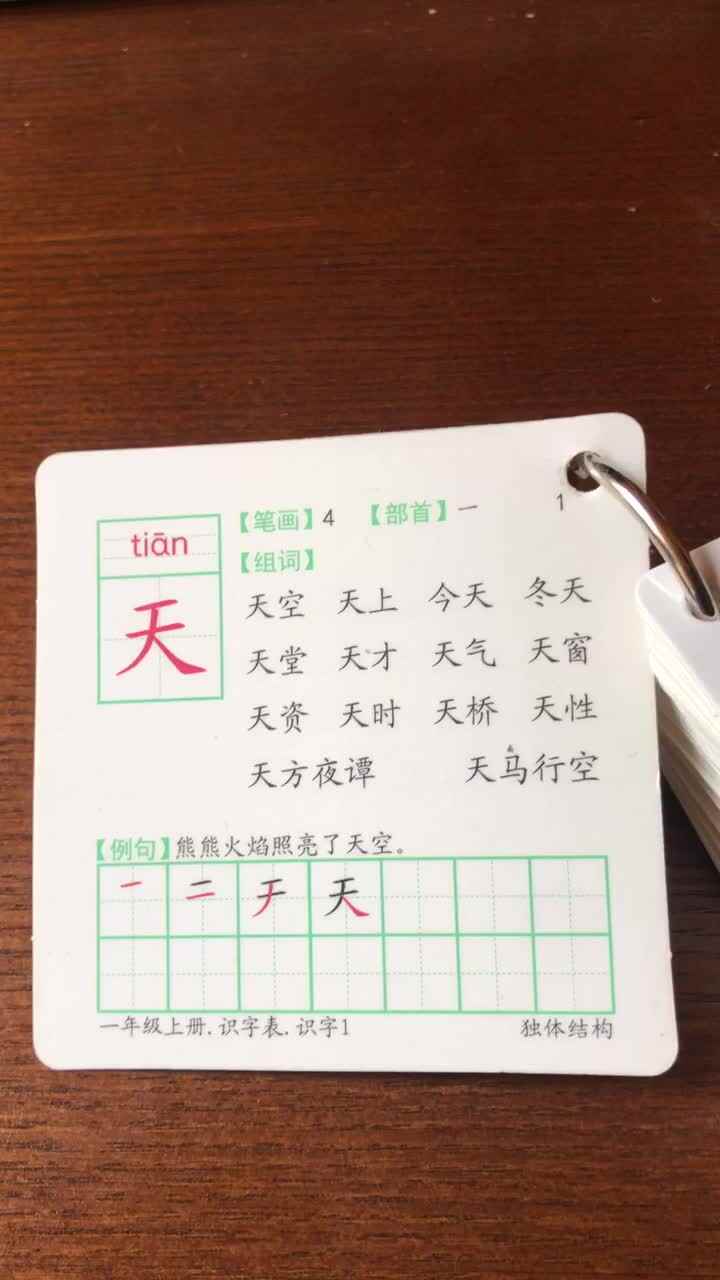 tiān
天
【笔画】4 【部首】一 1
【组词】
天空 天上 今天 冬天
天堂 天才 天气 天窗
天资 天时 天桥 天性
天方夜谭 天马行空
【例句】熊熊火焰照亮了天空。
一 二 于 天
一年级上册.识字表.识字1 独体结构